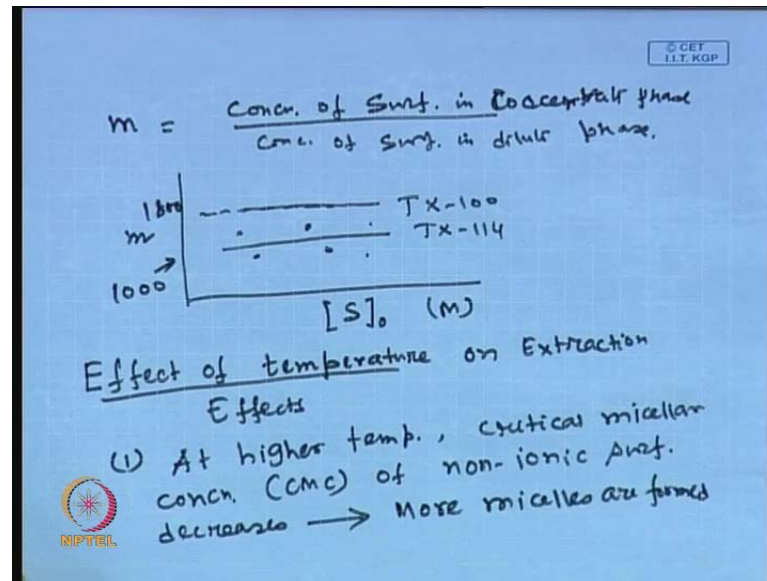 © CET
I.I.T. KGP
m = Concn. of Surf. in Coacervate phase
Conc. of Surf. in dilute phase.
1800
TX-100
m
TX-114
1000
[S]₀ (M)
Effect of temperature on Extraction
Effects
(1) At higher temp., critical micellar
concn. (CMC) of non-ionic surf.
decreases → More micelles are formed
NPTEL